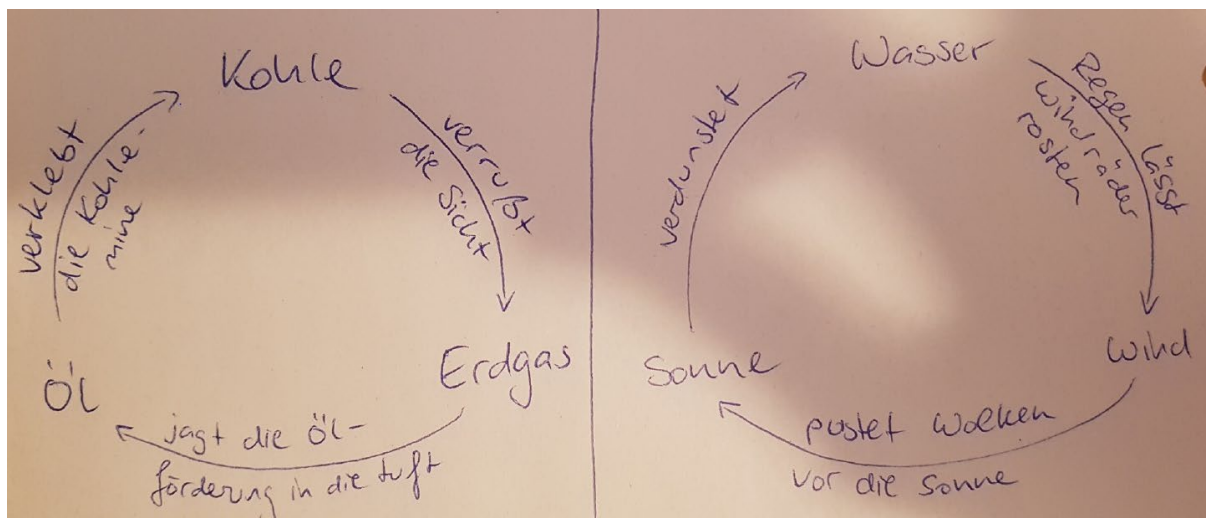 Kohle
verrußt
die Sicht
Erdgas
jagt die Öl-
förderung in die Luft
Öl
verklebt
die Kohle-
mine
Wasser
Regen lässt
Windräder
rosten
Wind
pustet Wolken
vor die Sonne
Sonne
verdunstet